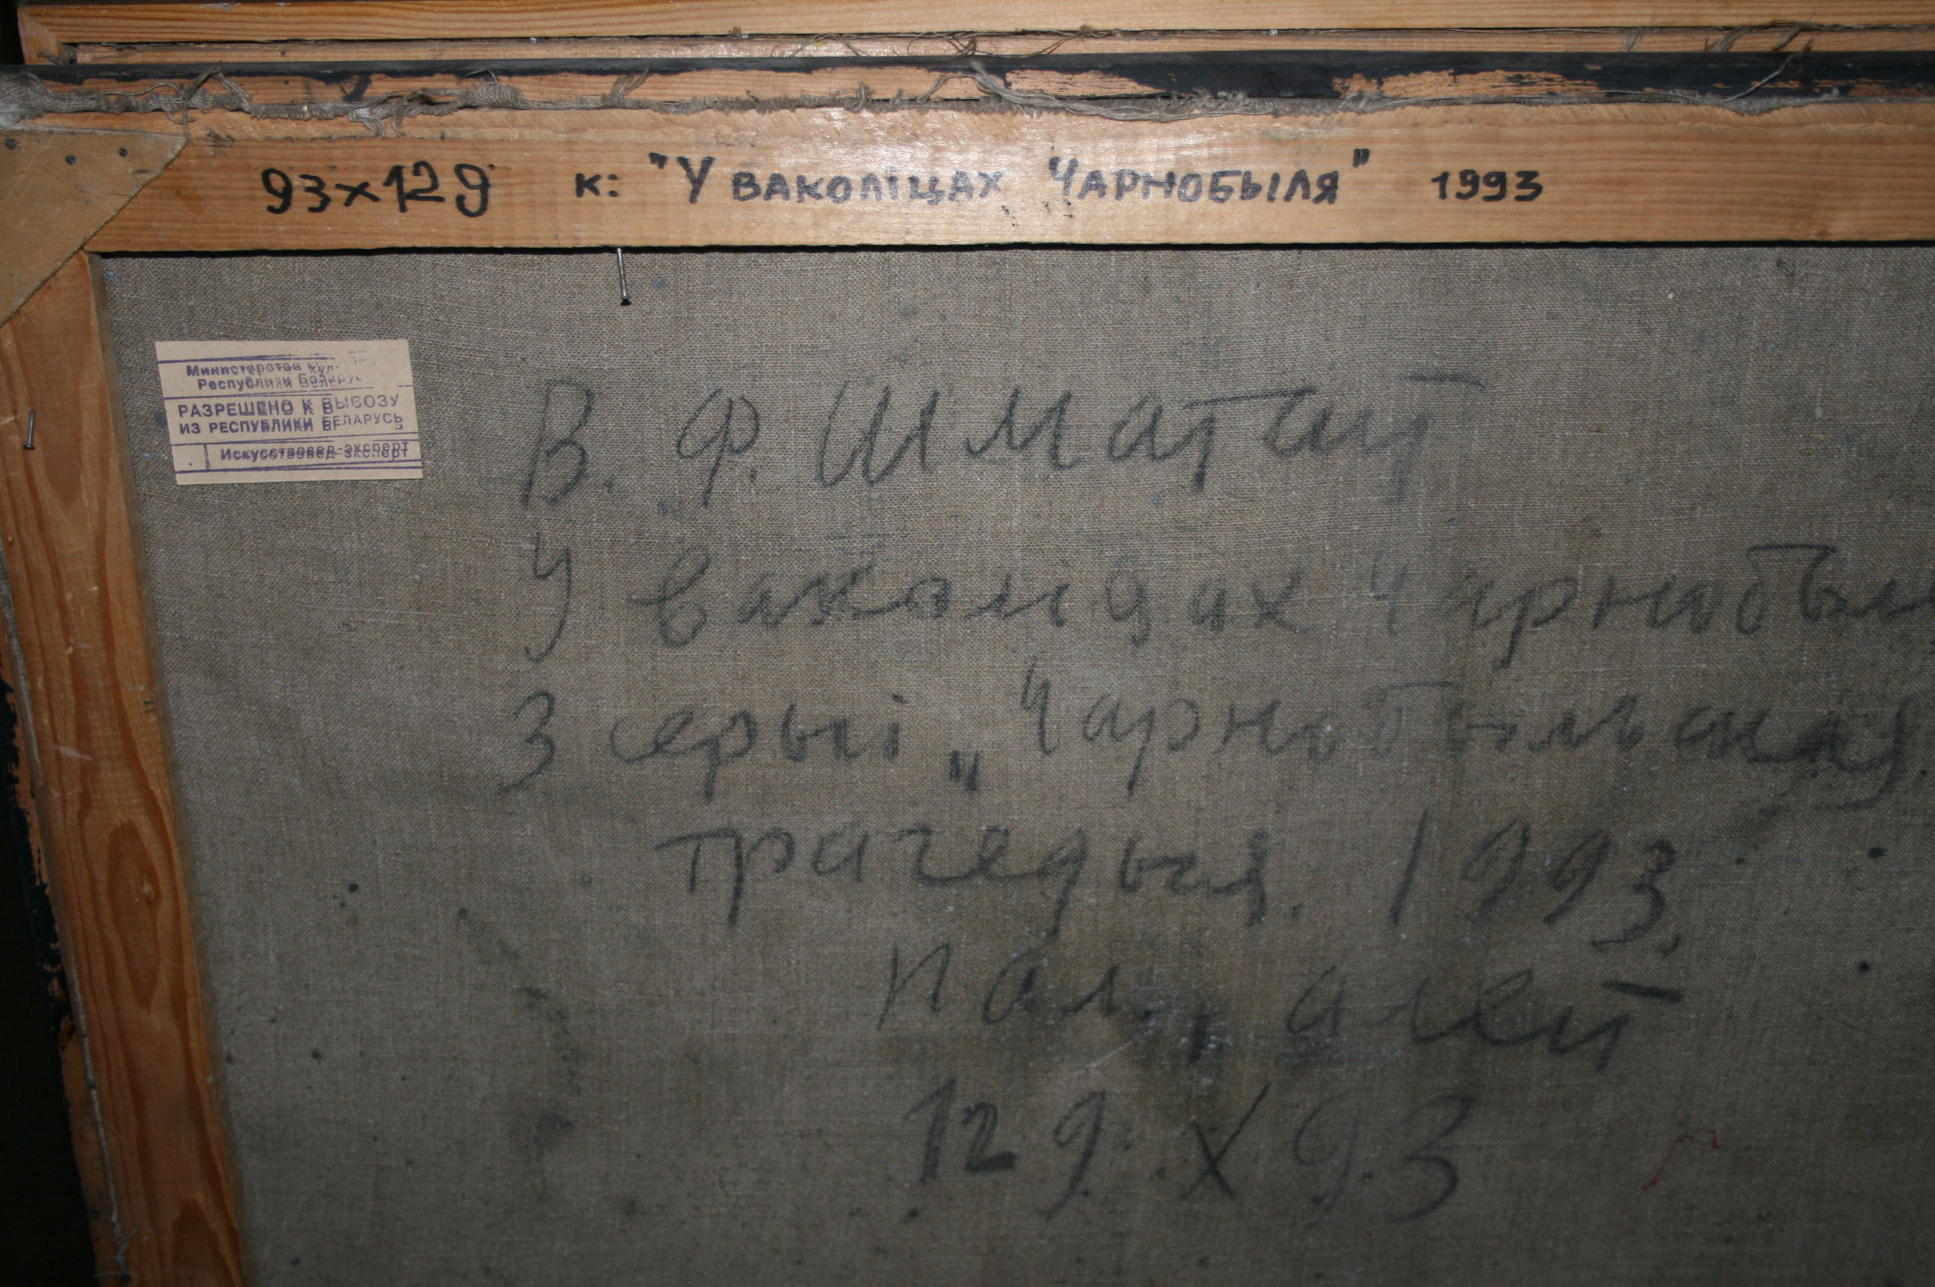 93х129 к: "У ваколіцах Чарнобыля" 1993
Министерство
Республики
РАЗРЕШЕНО К ВЫВОЗУ
ИЗ РЕСПУБЛИКИ БЕЛАРУСЬ
Искусствовед-эксперт
В. Ф. Шматаў
У ваколіцах Чарнобыл
З серыі „Чарнобыльская
трагедыя. 1993.
пал., алей
129 х 93